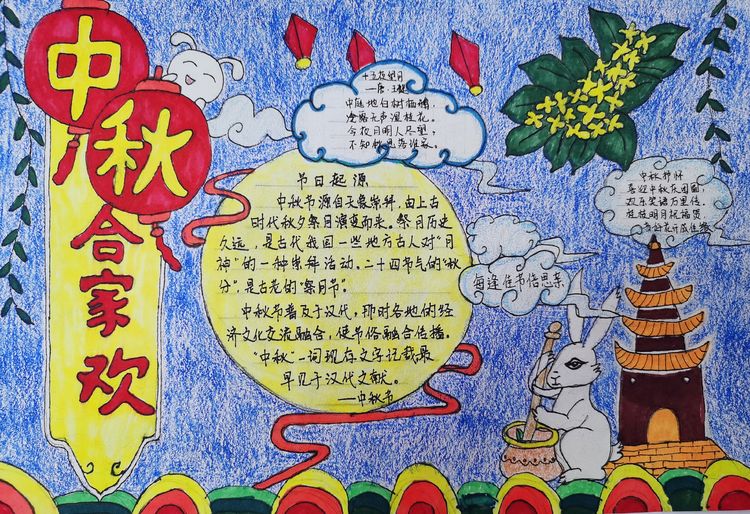 中秋
合家欢
十五夜望月
—唐·王建
中庭地白树栖鸦,
冷露无声湿桂花。
今夜月明人尽望,
不知秋思落谁家。
节日起源
中秋节源自天象崇拜,由上古
时代秋夕祭月演变而来。祭月历史
久远,是古代我国一些地方古人对“月
神”的一种崇拜活动。二十四节气的“秋
分”,是古老的“祭月节”。
中秋节普及于汉代,那时各地的经
济文化交流融合,使节俗融合传播。
“中秋”一词现存文字记载最
早见于汉代文献。
—中秋节
每逢佳节倍思亲
喜迎中秋庆团圆,
欢乐笑语万里传。